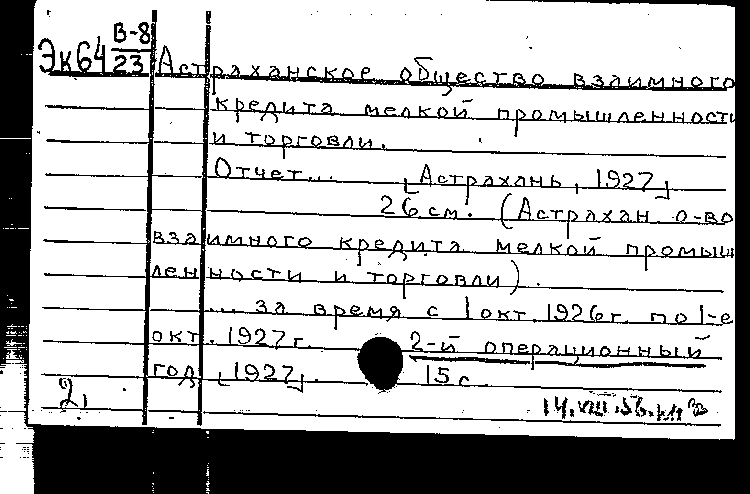 Эк64 В-8
23
Астраханское общество взаимного
кредита мелкой промышленности
и торговли.
Отчет... [Астрахань, 1927]
26 см. (Астрахан о-во
взаимного кредита мелкой промыш
ленности и торговли).
... за время с 1 окт. 1926 г. по 1-е
окт. 1927 г. 2-й операционный
год [1927]. 15 с
2. 14.VIII.56.